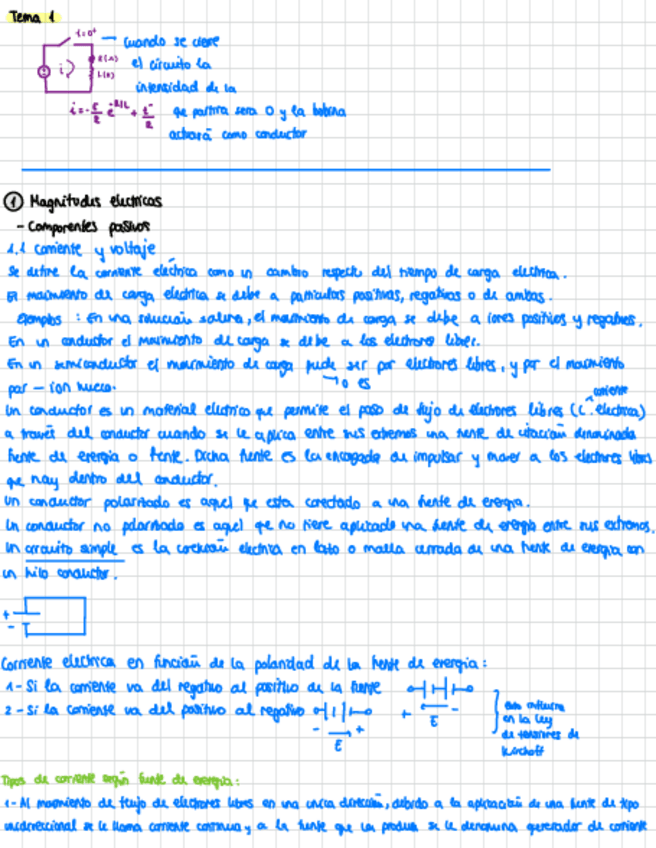 Tema 1
t=0+
cuando se cierre
R(Λ)
el circuito la
i
L(H)
intensidad de la
que partira sera 0 y la bobina
actuará como conductor
① Magnitudes electricas
- Componentes pasivos
1.1 corriente y voltaje
Se define la corriente electrica como un cambio respecto del tiempo de carga electrica.
El movimiento de carga electrica se debe a particulas positivas, negativas o de ambas.
Ejemplos : En una solución salina, el movimiento de carga se debe a iones positivos y negativos.
En un conductor el movimiento de carga se debe a los electrones libres.
En un semiconductor el movimiento de carga puede ser por electrones libres, y por el movimiento
o es
por - ion hueco.
corriente
Un conductor es un material electrico que permite el paso de flujo de electrones libres (C. electrica)
a través del conductor cuando se le aplica entre sus extremos una fuente de excitación denominada
fuente de energia o fuente. Dicha fuente es la encargada de impulsar y mover a los electrones libres
que hay dentro del conductor.
Un conductor polarizado es aquel que esta conectado a una fuente de energia.
Un conductor no polarizado es aquel que no tiene aplicado una fuente de energia entre sus extremos.
Un circuito simple es la conexión electrica en lazo o malla cerrada de una fuente de energia con
un hilo conductor.
+
-
Corriente electrica en función de la polaridad de la fuente de energia :
1- Si la corriente va del negativo al positivo de la fuente
+ -
E
2- Si la corriente va del positivo al negativo
- +
E
esto influira
en la ley
de tensiones de
Kirchoff
Tipos de corriente según fuente de energia :
1- Al movimiento de flujo de electrones libres en una unica dirección, debido a la aplicación de una fuente de tipo
unidireccional se le llama corriente continua y a la fuente que la produce se le denomina generador de corriente